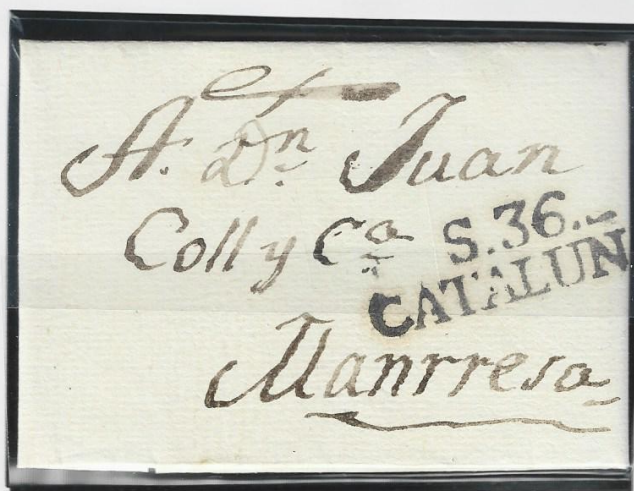 A. Dn. Juan
Coll y Ca.
S.36.
CATALUN
Manrresa